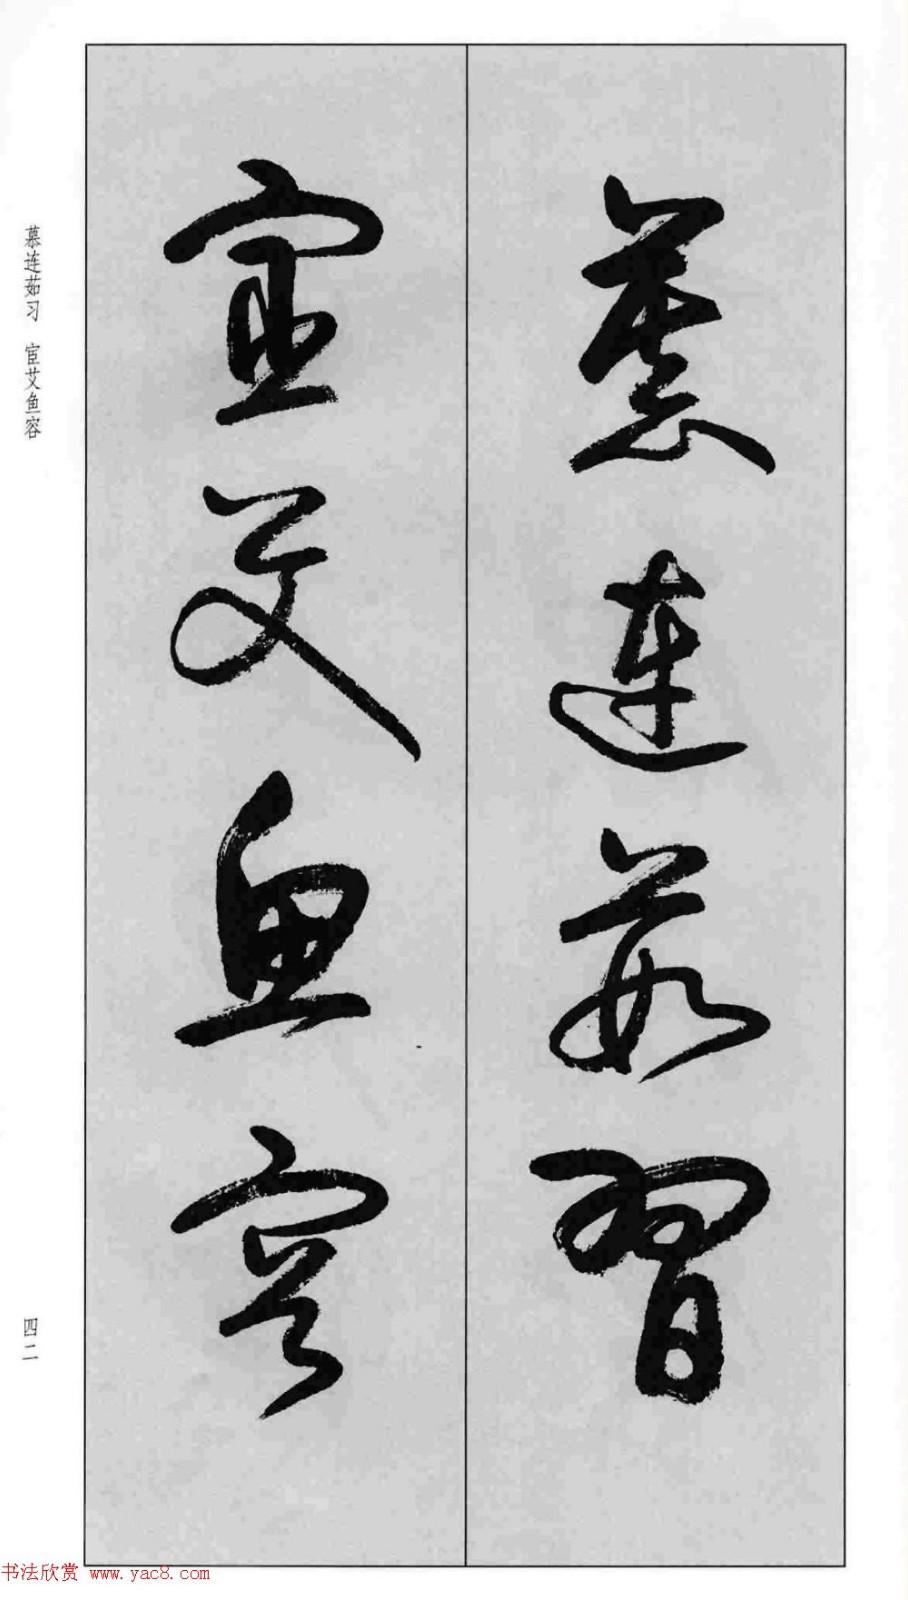 慕連茹習
宦艾魚容
慕连茹习 宦艾鱼容
四二
书法欣赏 www.yac8.com